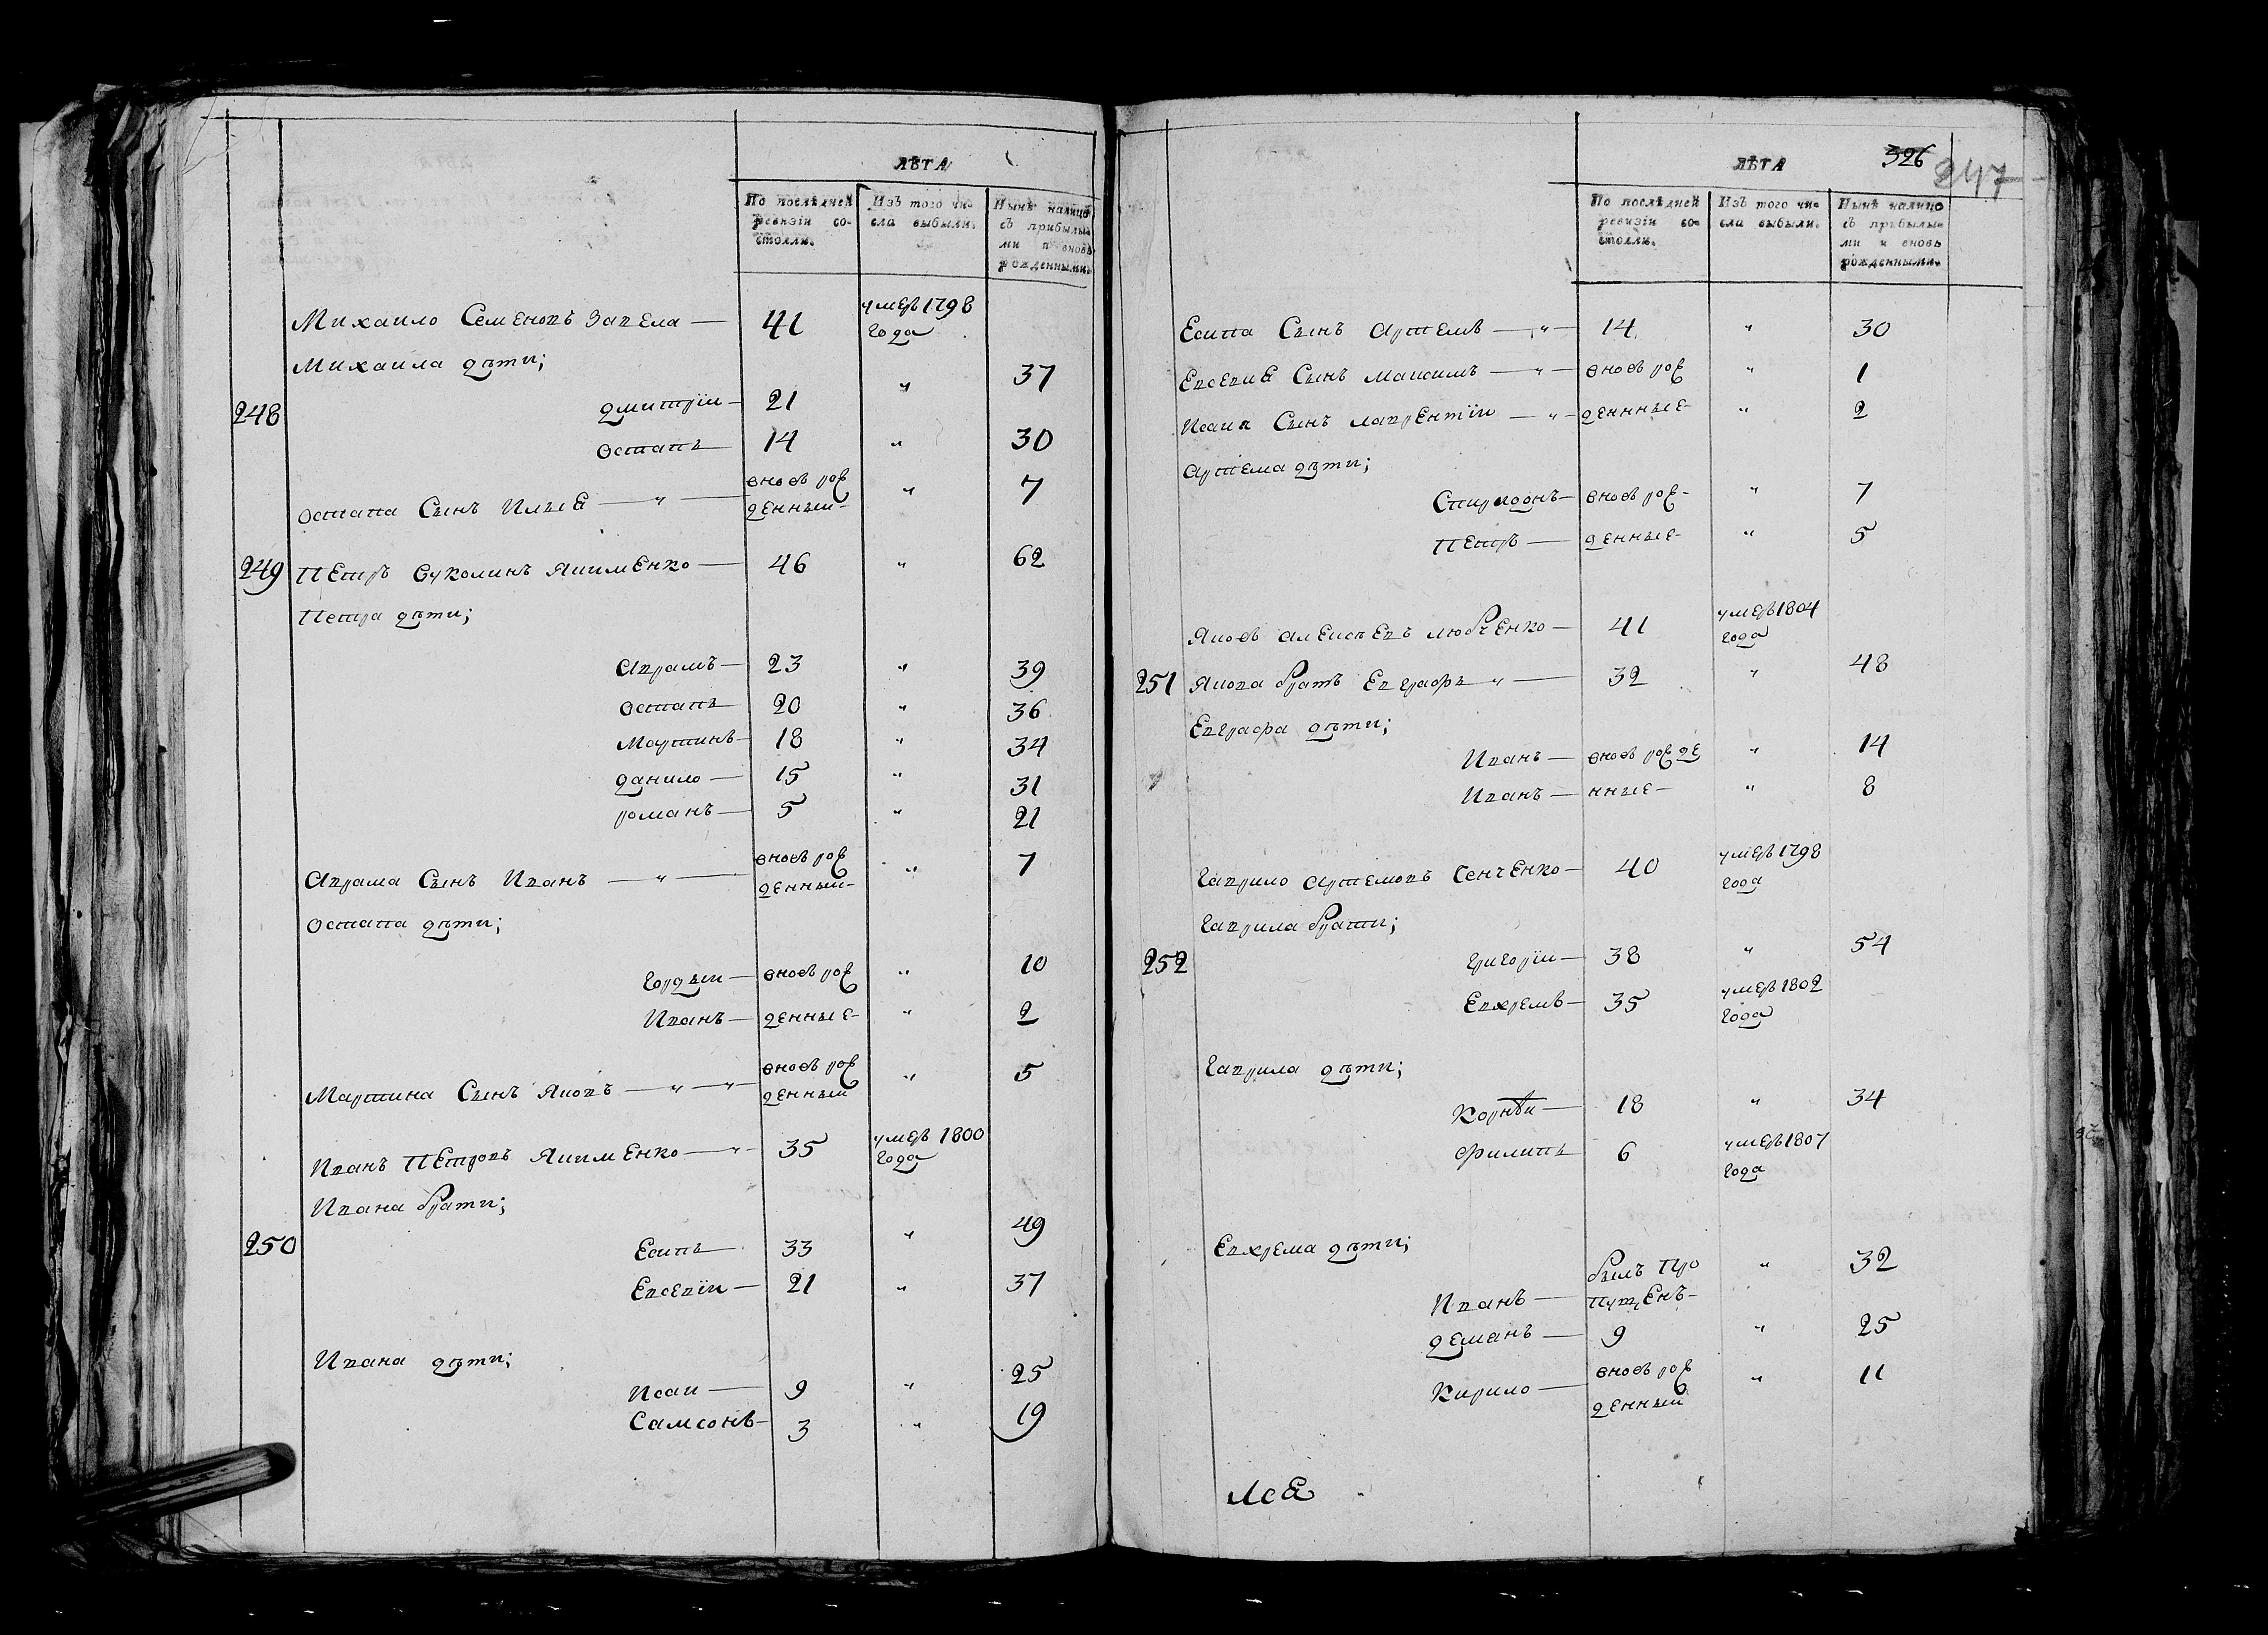 ЛѢТА
По послѣдней ревизіи состояли.
Изъ того числа выбыли.
Нынѣ налицо съ прибылыми и вновь рожденными.
Михаило Семеновъ Запела — 41 умеръ 1798 года
Михаила дѣти;
248 Дмитрiи — 21 " 37
Остапъ — 14 " 30
Остапа Сынъ Илье — " — вновь рожденныи 7
249 Петръ Вуколинъ Якименко — 46 " 62
Петра дѣти;
Аврамъ — 23 " 39
Остапъ — 20 " 36
Мартинъ — 18 " 34
Данило — 15 " 31
Романъ — 5 " 21
Аврама Сынъ Иванъ — " — вновь рожденныи " 7
Остапа дѣти;
Гордѣи — вновь рож " 10
Иванъ — денные " 2
Мартина Сынъ Яковъ — " — " вновь рожденныи " 5
Иванъ Петровъ Якименко — " 35 умеръ 1800 года
Ивана брати;
250 Есипъ 33 " 49
Евсевiи — 21 " 37
Ивана дѣти;
Исаи — 9 " 25
Самсонъ — 3 " 19
326
247
ЛѢТА
По послѣдней ревизіи состояли.
Изъ того числа выбыли.
Нынѣ налицо съ прибылыми и вновь рожденными.
Есипа Сынъ Артемъ — " — 14 " 30
Евсевия Сынъ Максимъ — " — вновь рож " 1
Исаия Сынъ Лаврентiи — " — денные " 2
Артема дѣти;
Спиридонъ — вновь рож " 7
Петръ — денные " 5
Яковъ Алексѣевъ Любченко — 41 умеръ 1804 года
251 Якова братъ Евграфъ " — 32 " 48
Евграфа дѣти;
Иванъ — вновь рожде " 14
Иванъ — нные " 8
Гаврило Артемовъ Сенченко — 40 умеръ 1798 года
Гаврила брати;
252 Григорiи — 38 " 54
Евхремъ — 35 умеръ 1802 года
Гаврила дѣти;
Корнѣи — 18 " 34
Филипъ 6 умеръ 1807 года
Евхрема дѣти;
Иванъ — былъ пропущенъ " 32
Деманъ — 9 " 25
Кирило — вновь рожденныи " 11